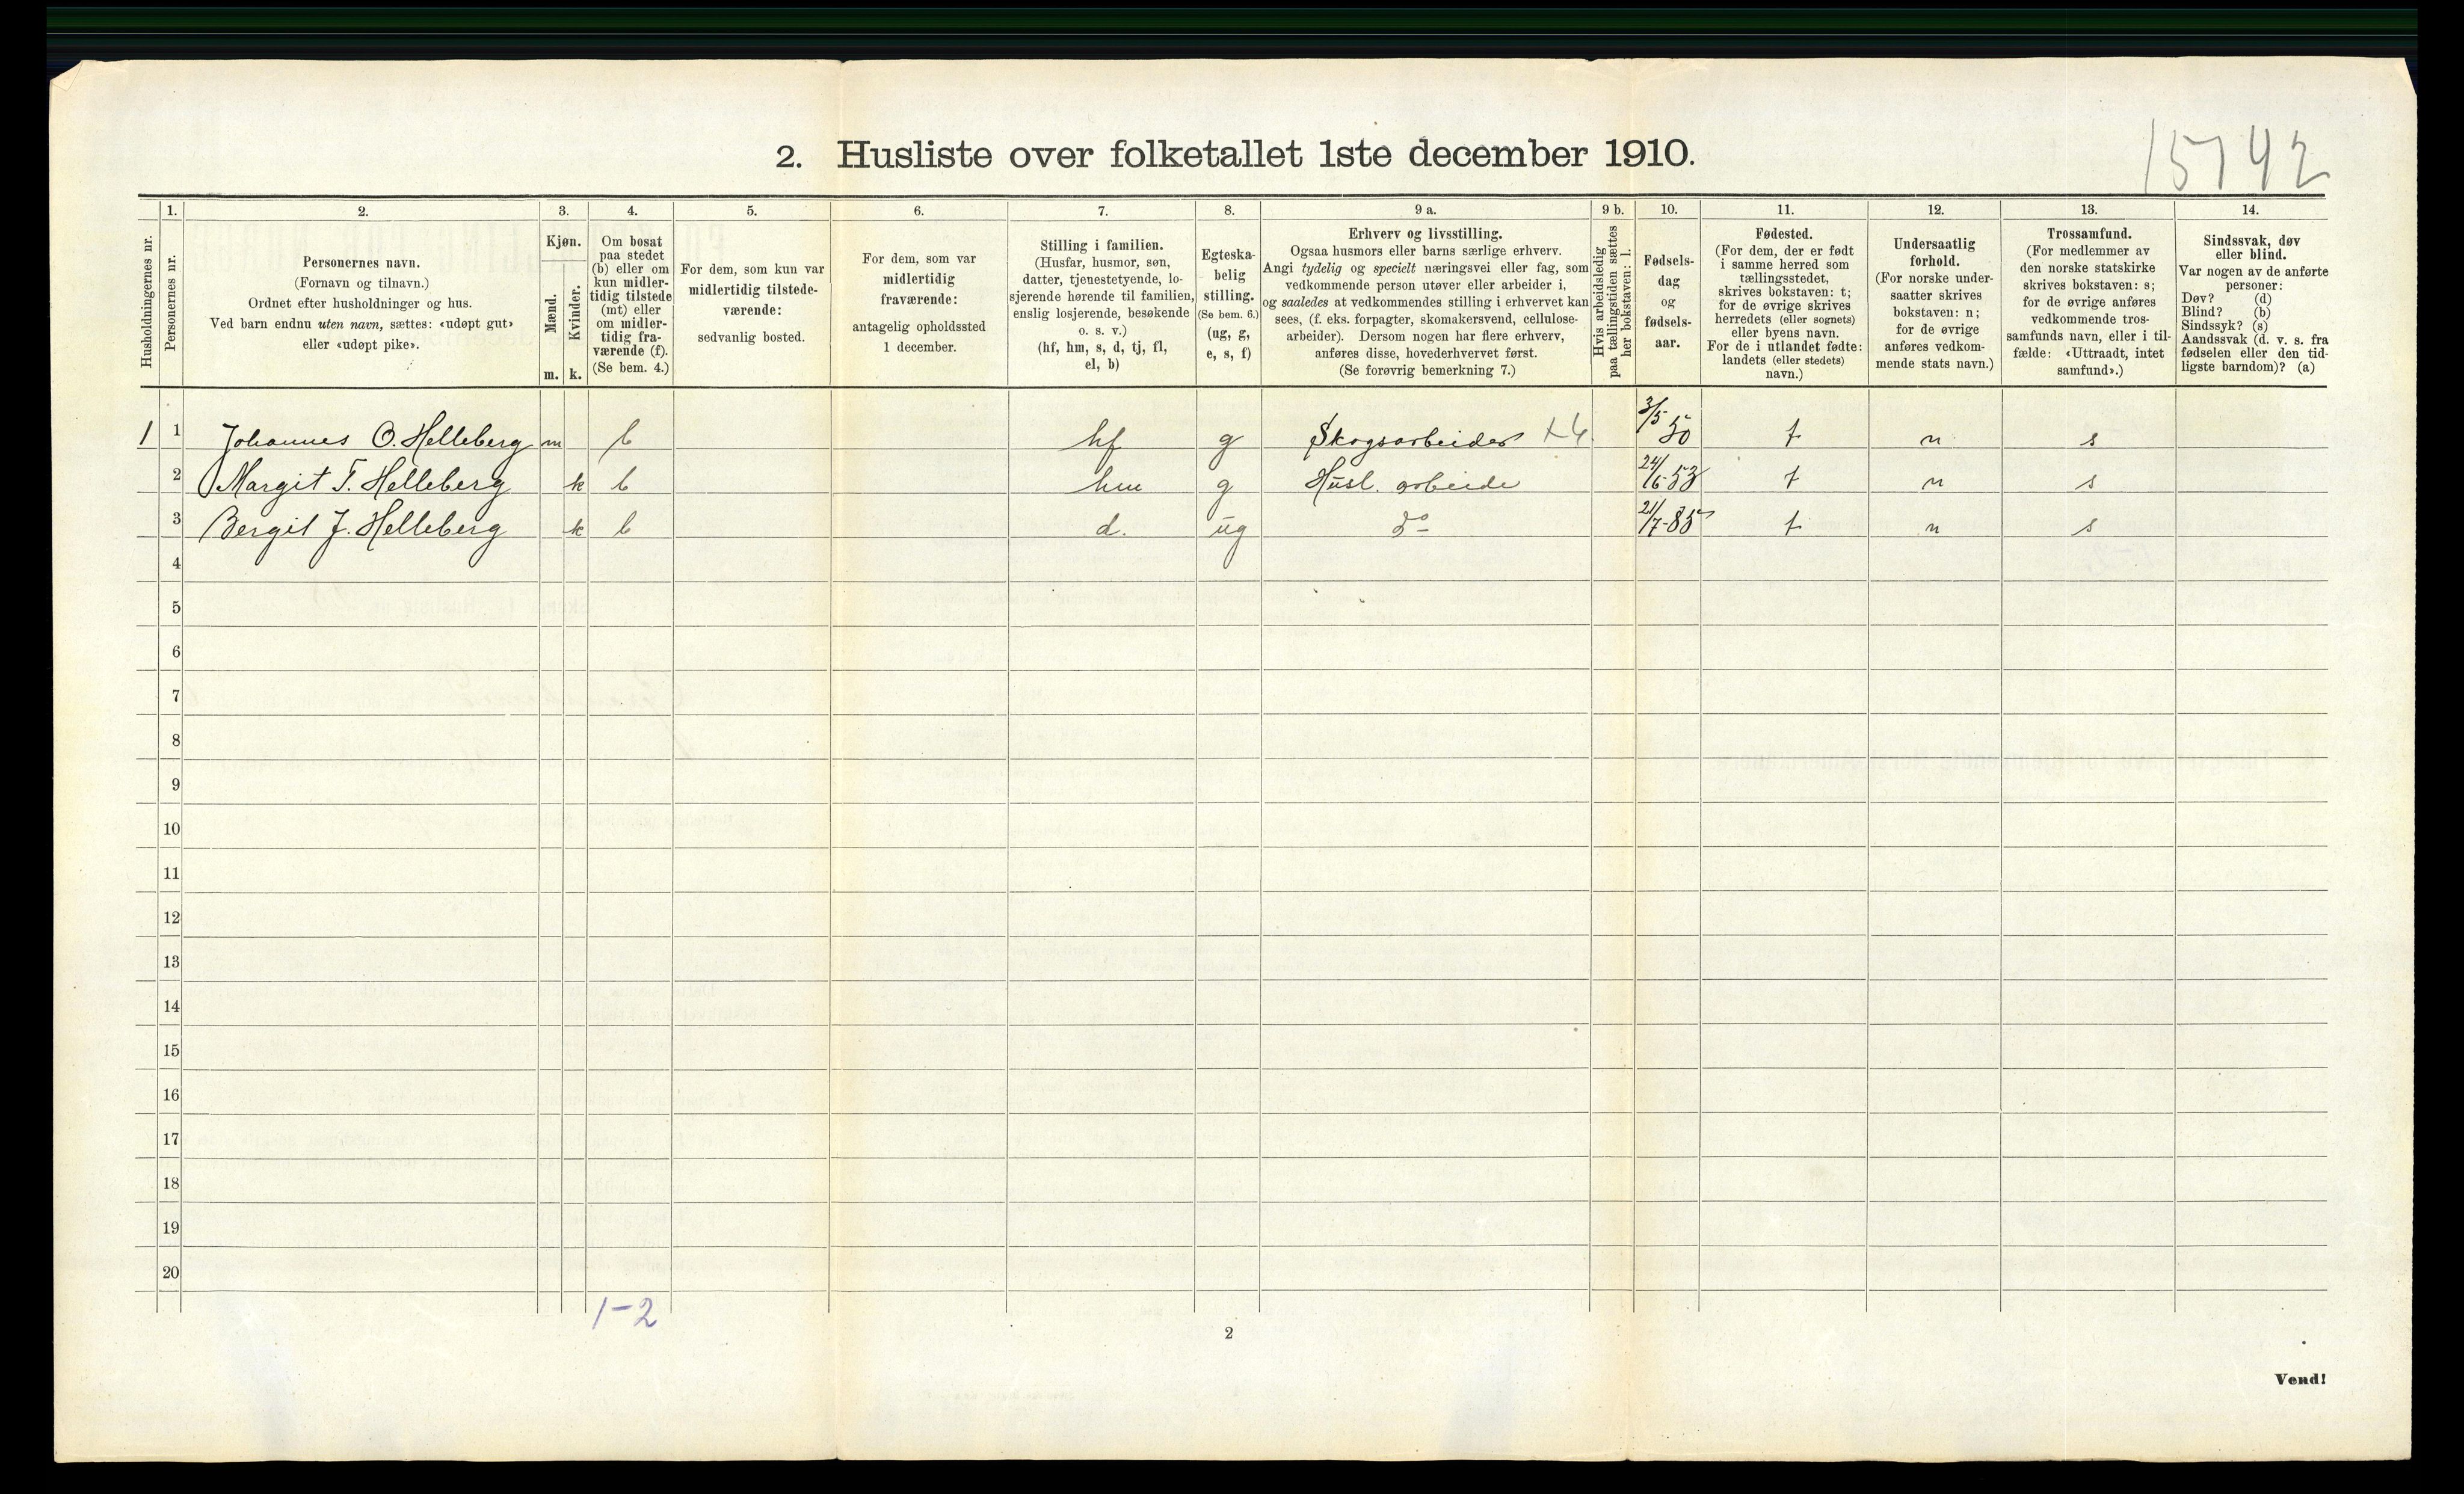 2. Husliste over folketallet 1ste december 1910.
15142
1. 2. 3. 4. 5. 6. 7. 8. 9 a. 9 b. 10. 11. 12. 13. 14.
Husholdningernes nr.
Personernes nr.
Personernes navn.
(Fornavn og tilnavn.)
Ordnet efter husholdninger og hus.
Ved barn endnu uten navn, sættes: «udøpt gut»
eller «udøpt pike».
Kjøn.
Mænd.
Kvinder.
m. k.
Om bosat
paa stedet
(b) eller om
kun midler-
tidig tilstede
(mt) eller
om midler-
tidig fra-
værende (f).
(Se bem. 4.)
For dem, som kun var
midlertidig tilstede-
værende:
sedvanlig bosted.
For dem, som var
midlertidig
fraværende:
antagelig opholdssted
1 december.
Stilling i familien.
(Husfar, husmor, søn,
datter, tjenestetyende, lo-
sjerende hørende til familien,
enslig losjerende, besøkende
o. s. v.)
(hf, hm, s, d, tj, fl,
el, b)
Egteska-
belig
stilling.
(Se bem. 6.)
(ug, g,
e, s, f)
Erhverv og livsstilling.
Ogsaa husmors eller barns særlige erhverv.
Angi tydelig og specielt næringsvei eller fag, som
vedkommende person utøver eller arbeider i,
og saaledes at vedkommendes stilling i erhvervet kan
sees, (f. eks. forpagter, skomakersvend, cellulose-
arbeider). Dersom nogen har flere erhverv,
anføres disse, hovederhvervet først.
(Se forøvrig bemerkning 7.)
Hvis arbeidsledig
paa tællingstiden sættes
her bokstaven: l.
Fødsels-
dag
og
fødsels-
aar.
Fødested.
(For dem, der er født
i samme herred som
tællingsstedet,
skrives bokstaven: t;
for de øvrige skrives
herredets (eller sognets)
eller byens navn.
For de i utlandet fødte:
landets (eller stedets)
navn.)
Undersaatlig
forhold.
(For norske under-
saatter skrives
bokstaven: n;
for de øvrige
anføres vedkom-
mende stats navn.)
Trossamfund.
(For medlemmer av
den norske statskirke
skrives bokstaven: s;
for de øvrige anføres
vedkommende tros-
samfunds navn, eller i til-
fælde: «Uttraadt, intet
samfund».)
Sindssvak, døv
eller blind.
Var nogen av de anførte
personer:
Døv? (d)
Blind? (b)
Sindssyk? (s)
Aandssvak (d. v. s. fra
fødselen eller den tid-
ligste barndom)? (a)
1 1 Johannes O. Helleberg m b hf g Skogsarbeider 3/5 50 t n s
2 Margit T. Helleberg k b hm g Husl. arbeide 24/6-53 t n s
3 Bergit J. Helleberg k b d. ug do 21/7-85 t n s
4
5
6
7
8
9
10
11
12
13
14
15
16
17
18
19
20
1-2
2
Vend!